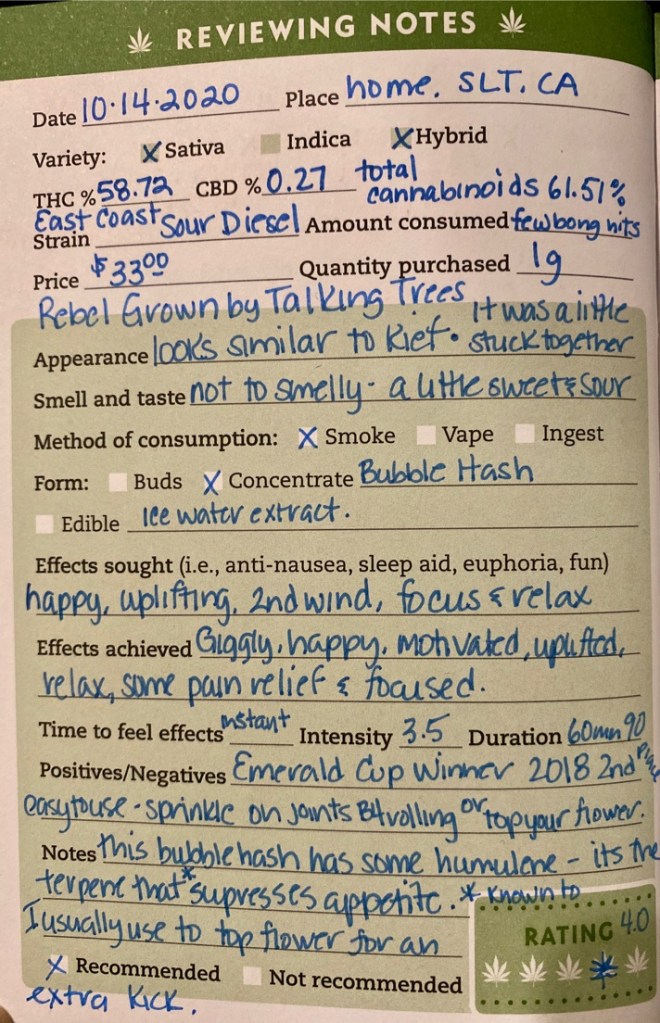 REVIEWING NOTES
Date 10·14·2020 Place home. SLT, CA
Variety: X Sativa Indica X Hybrid
THC % 58.72 CBD % 0.27 total cannabinoids 61.51%
Strain East Coast Sour Diesel Amount consumed few bong hits
Price $33.00 Quantity purchased 1g
Rebel Grown by Talking Trees
Appearance looks similar to Kief. it was a little stuck together
Smell and taste not to smelly - a little sweet & sour
Method of consumption: X Smoke Vape Ingest
Form: Buds X Concentrate Bubble Hash
Edible Ice water extract.
Effects sought (i.e., anti-nausea, sleep aid, euphoria, fun)
happy, uplifting, 2nd wind, focus & relax
Effects achieved Giggly, happy, motivated, uplifted,
relax, some pain relief & focused.
Time to feel effects instant Intensity 3.5 Duration 60min 90
Positives/Negatives Emerald Cup Winner 2018 2nd Place
easy to use - sprinkle on joints B4 rolling or top your flower.
Notes this bubble hash has some humulene - its the
terpene that * supresses appetite. * known to
I usually use to top flower for an
RATING 4.0
X Recommended Not recommended
extra kick.